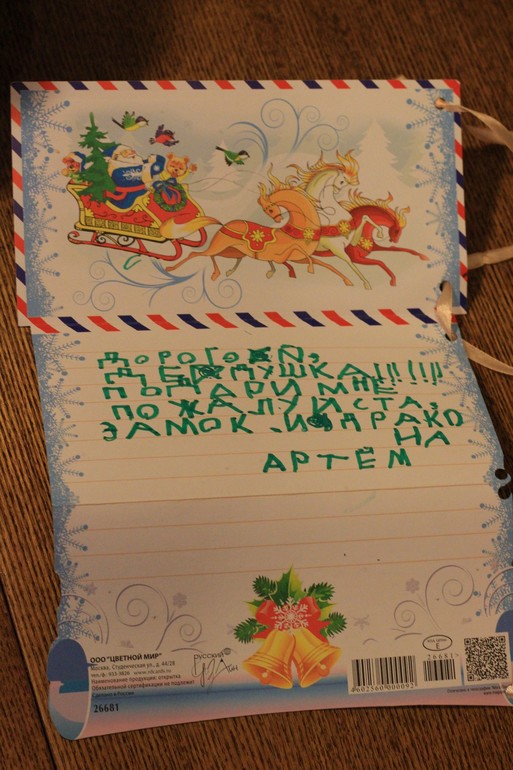 ДОРОГОЙ,
ДЕДУШКА!!!!!
ПОДАРИ МНЕ
ПОЖАЛУЙСТА,
ЗАМОК И ДРАКО
НА
АРТЁМ
ООО "ЦВЕТНОЙ МИР"
Москва, Студенческая ул., д. 44/28
Наименование продукции: открытка
Обязательной сертификации не подлежит
Сделано в России
26681
русский
дизайн
26681
4602560000092